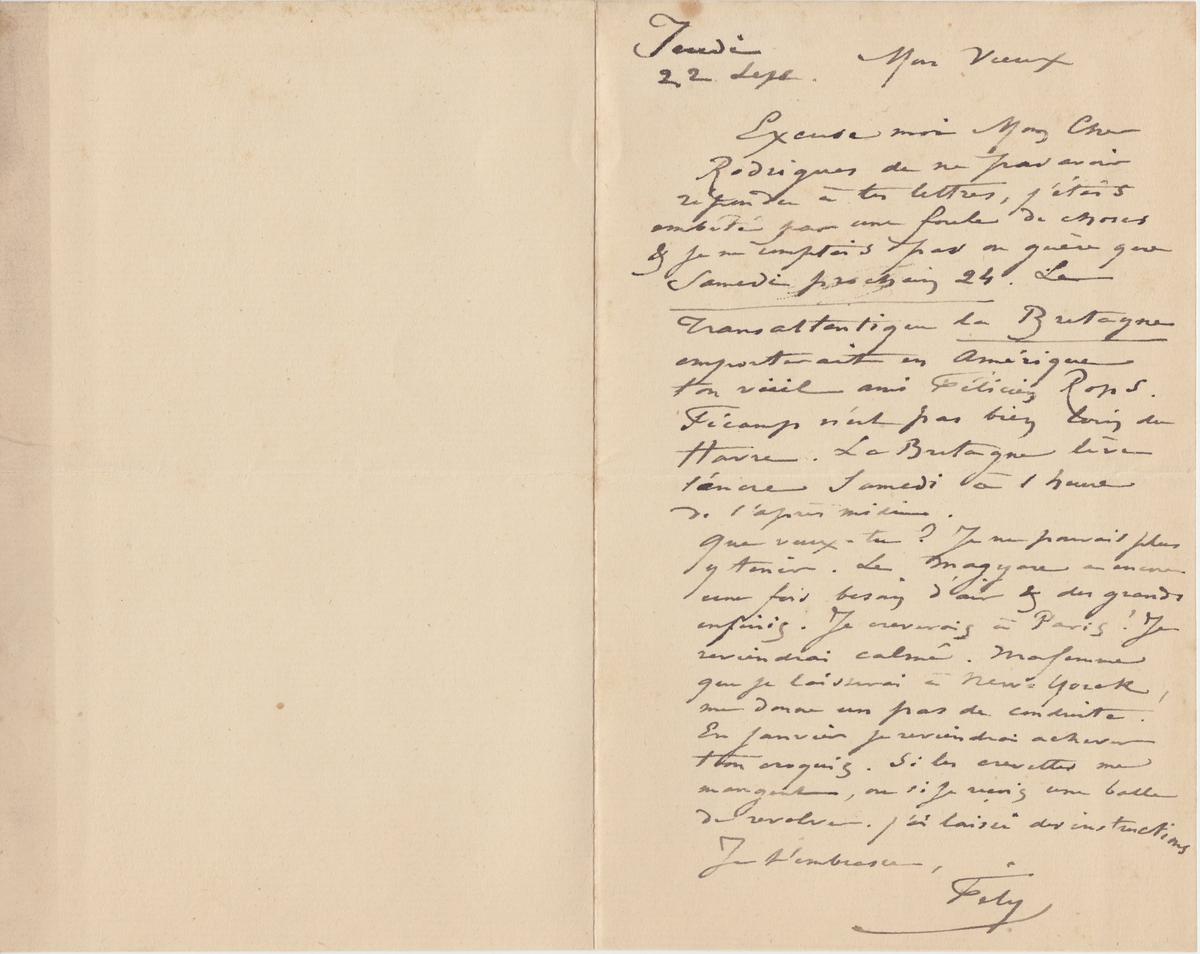 Jeudi
22 Sept.
Mon Vieux
Excuse moi Mon Cher
Rodrigues de ne pas avoir
répondu à tes lettres, j'étais
embêté par une foule de choses
& je ne comptais pas ou guère que
Samedi prochain 24. Le
Transatlantique la Bretagne
emporterait en Amérique
ton vieil ami Félicien Rops.
Fécamp n'est pas bien loin du
Havre. La Bretagne lève
l'ancre Samedi à 1 heure
de l'après midi.
Que veux-tu ? Je ne pouvais plus
y tenir. Le Magyare a encore
une fois besoin d'air & des grands
infinis. Je creverais à Paris ! Je
reviendrai calmé. Ma femme
que je laisserai à New-Yorck,
me donne un pas de conduite.
En janvier je reviendrai achever
ton croquis. Si les crevettes me
mangent, ou si je reçois une balle
de revolver. j'ai laissé des instructions
Je t'embrasse,
Fély